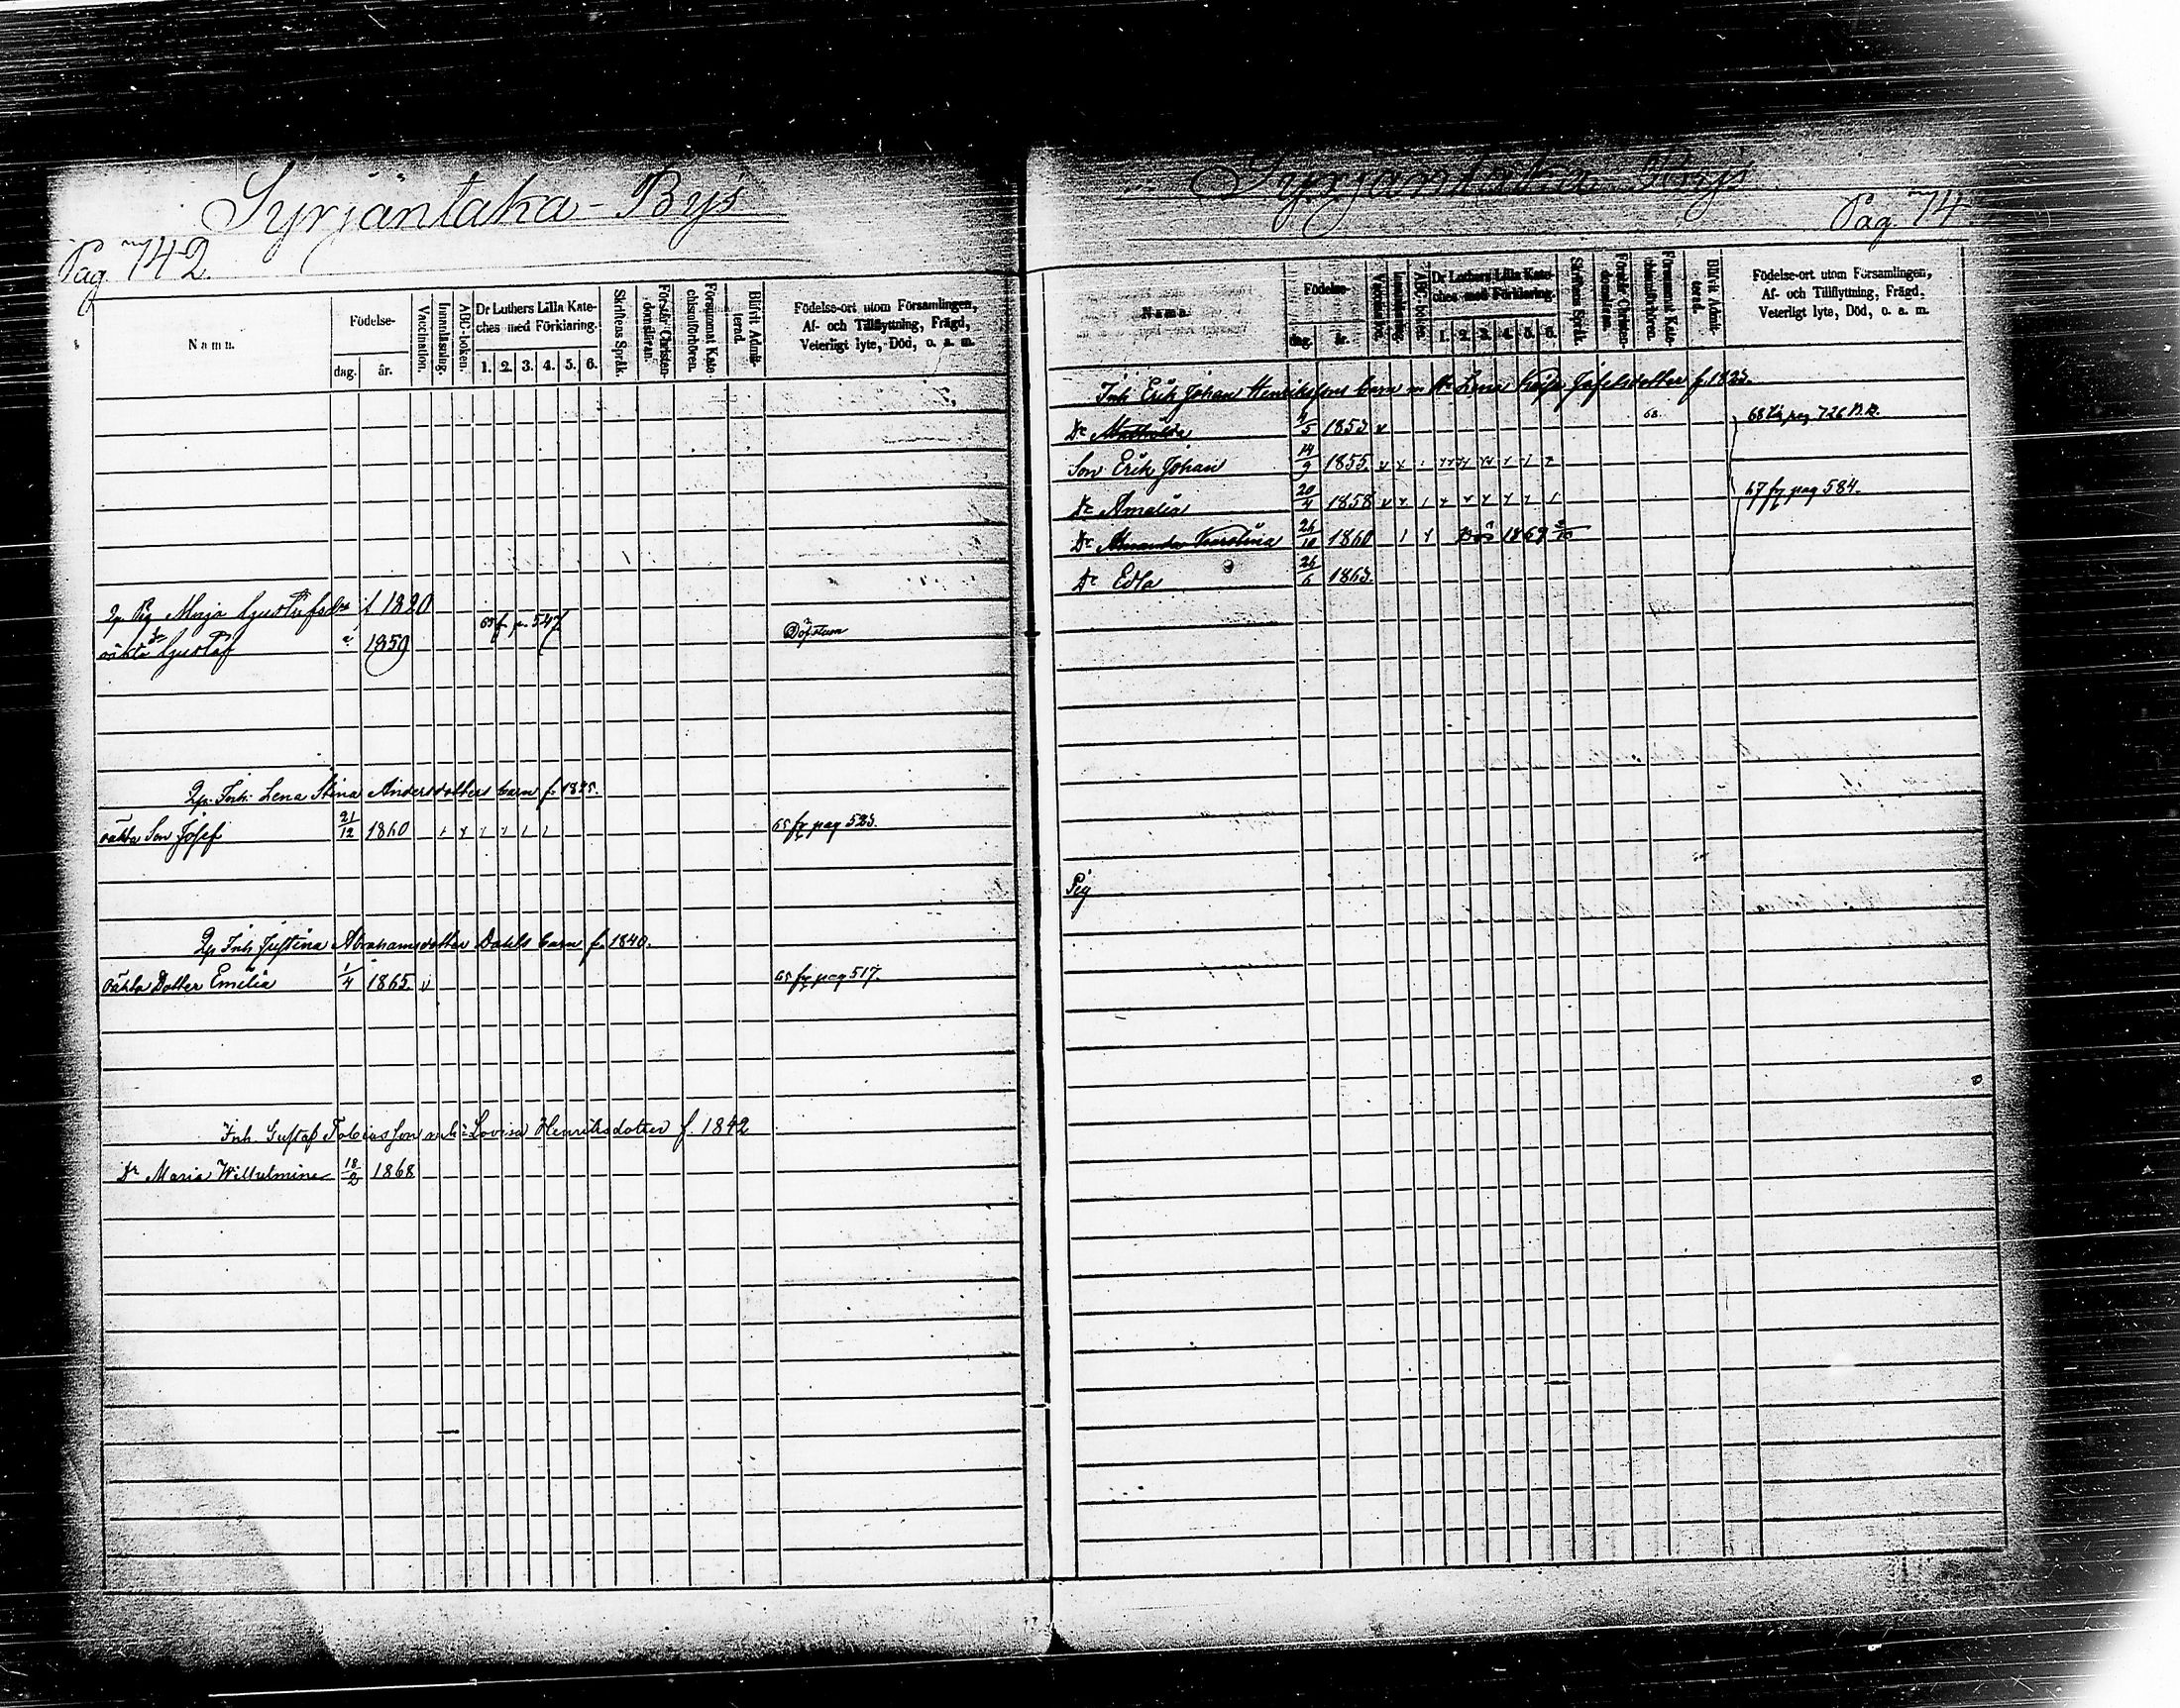 Syrjäntaka-Bys
Pag. 742.
Namn. Födelse- dag. år. Vaccination. Innanläsning. ABC-boken. Dr Luthers Lilla Kateches med Förklaring. 1. 2. 3. 4. 5. 6. Skriftens Språk. Förstår Christendomsläran. Försummat Katechismiförhören. Blifvit Admitterad. Födelse-ort utom Församlingen, Af- och Tillflyttning, Frägd, Veterligt lyte, Död, o. a. m.
Qp. Pig. Maja Gustafsdr f 1820
oäkta Sn Gustaf 1859 65 fr p. 547 Döfstum
Qp. Inh. Lena Stina Andersdotters barn f. 1825.
oäkta Son Josef 21/12 1860 65 fr pag 523.
Qp Inh. Justina Abrahamsdotter Dahls barn f. 1840.
Oäkta Dotter Emilia 1/4 1865. v 65 fr pag 517.
Inh. Gustaf Tobiasson Lovisa Henriksdotter f. 1842
Dr Maria Wilhelmina 18/2 1868
Syrjäntaka Bys
Pag. 74
Namn. Födelse- dag. år. Vaccination. Innanläsning. ABC-boken. Dr Luthers Lilla Kateches med Förklaring. 1. 2. 3. 4. 5. 6. Skriftens Språk. Förstår Christendomsläran. Försummat Katechismiförhören. Blifvit Admitterad. Födelse-ort utom Församlingen, Af- och Tillflyttning, Frägd, Veterligt lyte, Död, o. a. m.
Inh. Erik Johan Henrikssons barn m. h. Lena Kaisa f. 1823.
Dr Mathilda 5 1853 v 68. 68 till pag 726 B.B.
Son Erik Johan 14/9 1855
Dr Amalia 20/4 1858 67 fr pag 584.
Dr Amanda Karolina 26/10 1860 Död 1869
Dr Edla 26/6 1863.
Pig